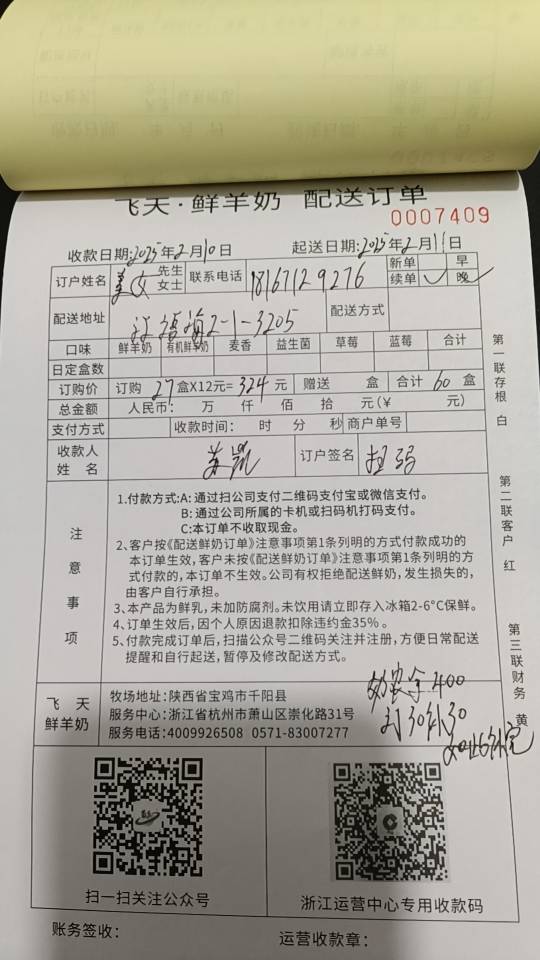 飞天·鲜羊奶 配送订单
0007409
收款日期:2025年2月10日 起送日期:2025年2月11日
订户姓名 姜女 先生 女士 联系电话 18167129276 新单 早
续单 ✓ 晚 ✓
配送地址 江语海2-1-3205 配送方式
口味 鲜羊奶 有机鲜羊奶 麦香 益生菌 草莓 蓝莓 合计
日定盒数
订购价 订购 27 盒X12元= 324 元 赠送 盒 合计 60 盒
总金额 人民币: 万 仟 佰 拾 元(¥ 元)
支付方式 收款时间: 时 分 秒 商户单号
收款人姓名 订户签名
注意事项
1.付款方式:A: 通过扫公司支付二维码支付宝或微信支付。
B: 通过公司所属的卡机或扫码机打码支付。
C:本订单不收取现金。
2、客户按《配送鲜奶订单》注意事项第1条列明的方式付款成功的
本订单生效,客户未按《配送鲜奶订单》注意事项第1条列明的方
式付款的,本订单不生效。公司有权拒绝配送鲜奶,发生损失的,
由客户自行承担。
3、本产品为鲜乳,未加防腐剂。未饮用请立即存入冰箱2-6°C保鲜。
4、订单生效后,因个人原因退款扣除违约金35%。
5、付款完成订单后,扫描公众号二维码关注并注册,方便日常配送
提醒和自行起送,暂停及修改配送方式。
飞天
鲜羊奶
牧场地址:陕西省宝鸡市千阳县
服务中心:浙江省杭州市萧山区崇化路31号
服务电话:4009926508 0571-83007277
400
30补30
扫一扫关注公众号 浙江运营中心专用收款码
账务签收: 运营收款章:
第一联存根 白
第二联客户 红
第三联财务 黄